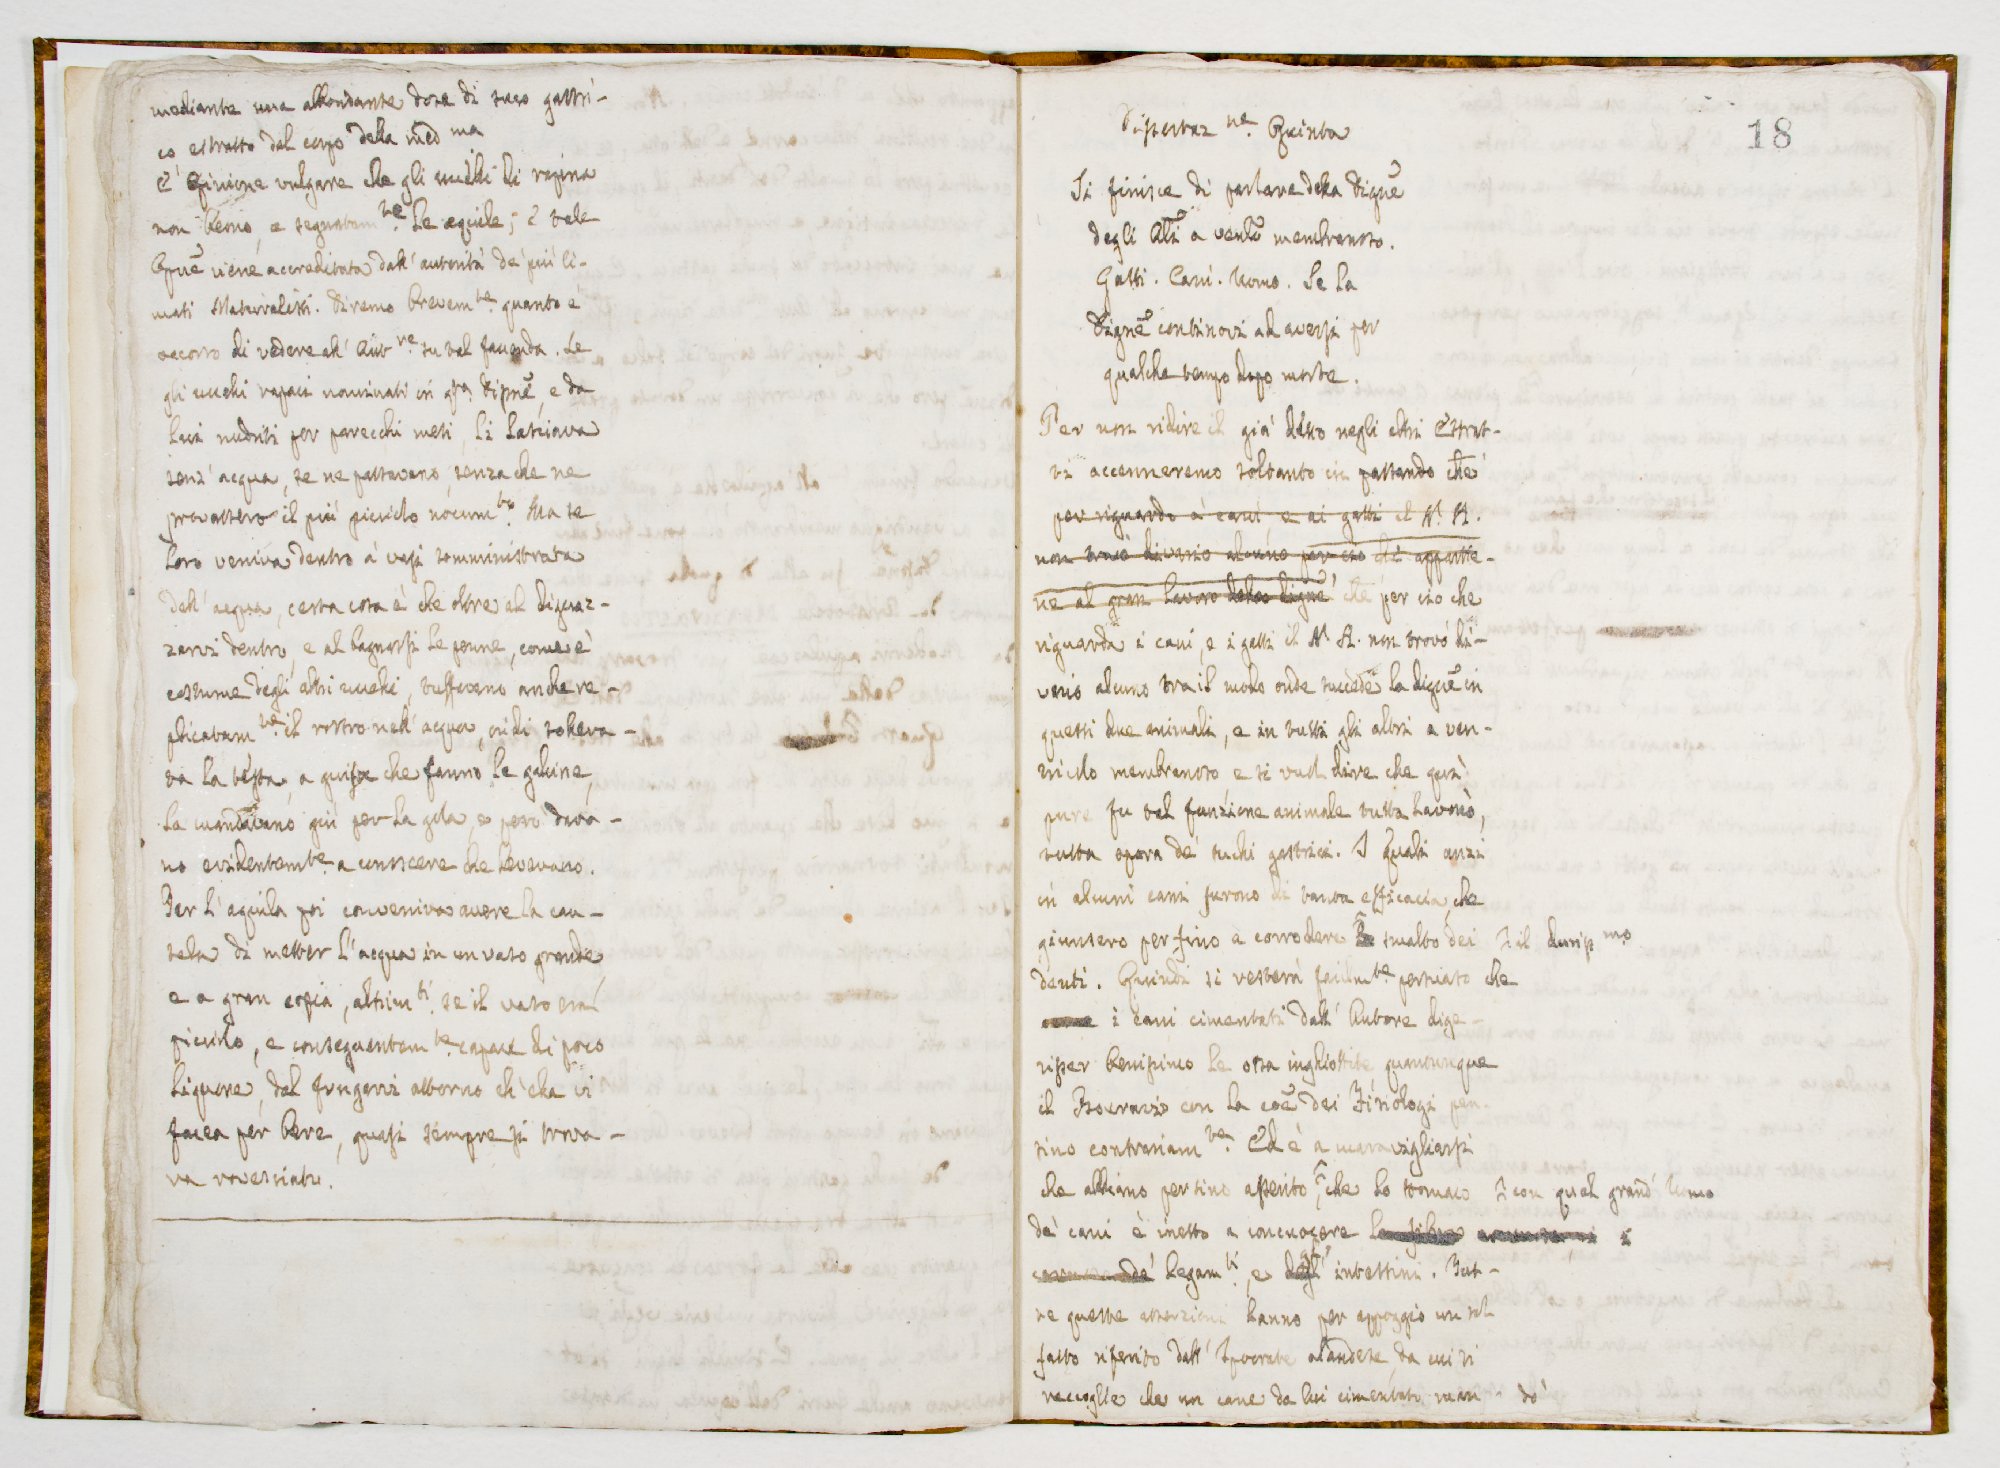 mediante una abbondante dose di suco gastri-
co estratto dal corpo della med ma
E' opinione vulgare che gli uccelli di rapina
non beono, e segnatam te. le aquile; e tale
opne viene accreditata dall' autorità de' più li-
mati Naturalisti. Diremo brevem te. quanto è
occorso di vedere all' Aut re. su tal facenda. Se
gli uccelli rapaci nominati in qta. dipne, e da
lui nudriti per parecchi mesi, li lasciava
senz' acqua, se ne passavano, senza che ne
provassero il più picciolo nocum to. Ma se
loro veniva dentro a' vasi somministrata
dell' acqua, certa cosa è che oltre al diguaz-
zarvi dentro, e al bagnarsi le penne, come è
costume degli altri uccelli, tuffavano anche re-
plicatam te. il rostro nell' acqua, indi solleva-
va la testa, a guisa che fanno le galine,
la mandavano giù per la gola, e però dava-
no evidentem te. a conoscere che bevevano.
Per l' aquila poi conveniva avere la cau-
tela di metter l' acqua in un vaso grande
e a gran copia, altrim ti. se il vaso era
piccolo, e conseguentem te. capace di poco
liquore, dal fungarvi attorno ch' ella vi
facea per bere, quasi sempre si trova-
va rovesciato.
18
Dissertaz ne. Quinta
Si finisce di parlare della Digne
degli Ali a ventlo membranoso.
Gatti. Cani. Uomo. Se la
Digne continovi ad aversi per
qualche tempo dopo morte.
Per non ridire il già detto negli altri Estrat-
ti accenneremo soltanto in passando che
per riguardo a' cani e ai gatti il N. A.
non trovò divario alcuno per ciò che appartie-
ne al gran lavoro della digne che per ciò che
riguarda i cani, e i gatti il N. A. non trovò di-
vario alcuno tra il modo onde succede la digne in
questi due animali, e in tutti gli altri a ven-
tricolo membranoso e si vuol dire che quì
pure fu tal funzione animale tutta lavorò,
tutta opera de' suchi gastrici. I quali anzi
in alcuni cani furono di tanta efficacia, che
giunsero perfino a corrodere lo smalto dei
il durissmo
denti. Quindi si resterà facilm te persuaso che
i cani cimentati dall' Autore dige-
risser benissimo le ossa inghiottite quantunque
il Boeravio con la coe dei Fisiologi pen-
sino contrariam te. Ed è a maravigliarsi
che abbiano persino asserito, che lo stomaco
con quel grand' Uomo
de' cani è inetto a concuocere i
legam ti, e degl' intestini. Tut-
te queste asserzioni hanno per appoggio un sol
fatto riferito dall' Ipocrate olandese, da cui si
raccoglie che un cane da lui cimentato man- dò